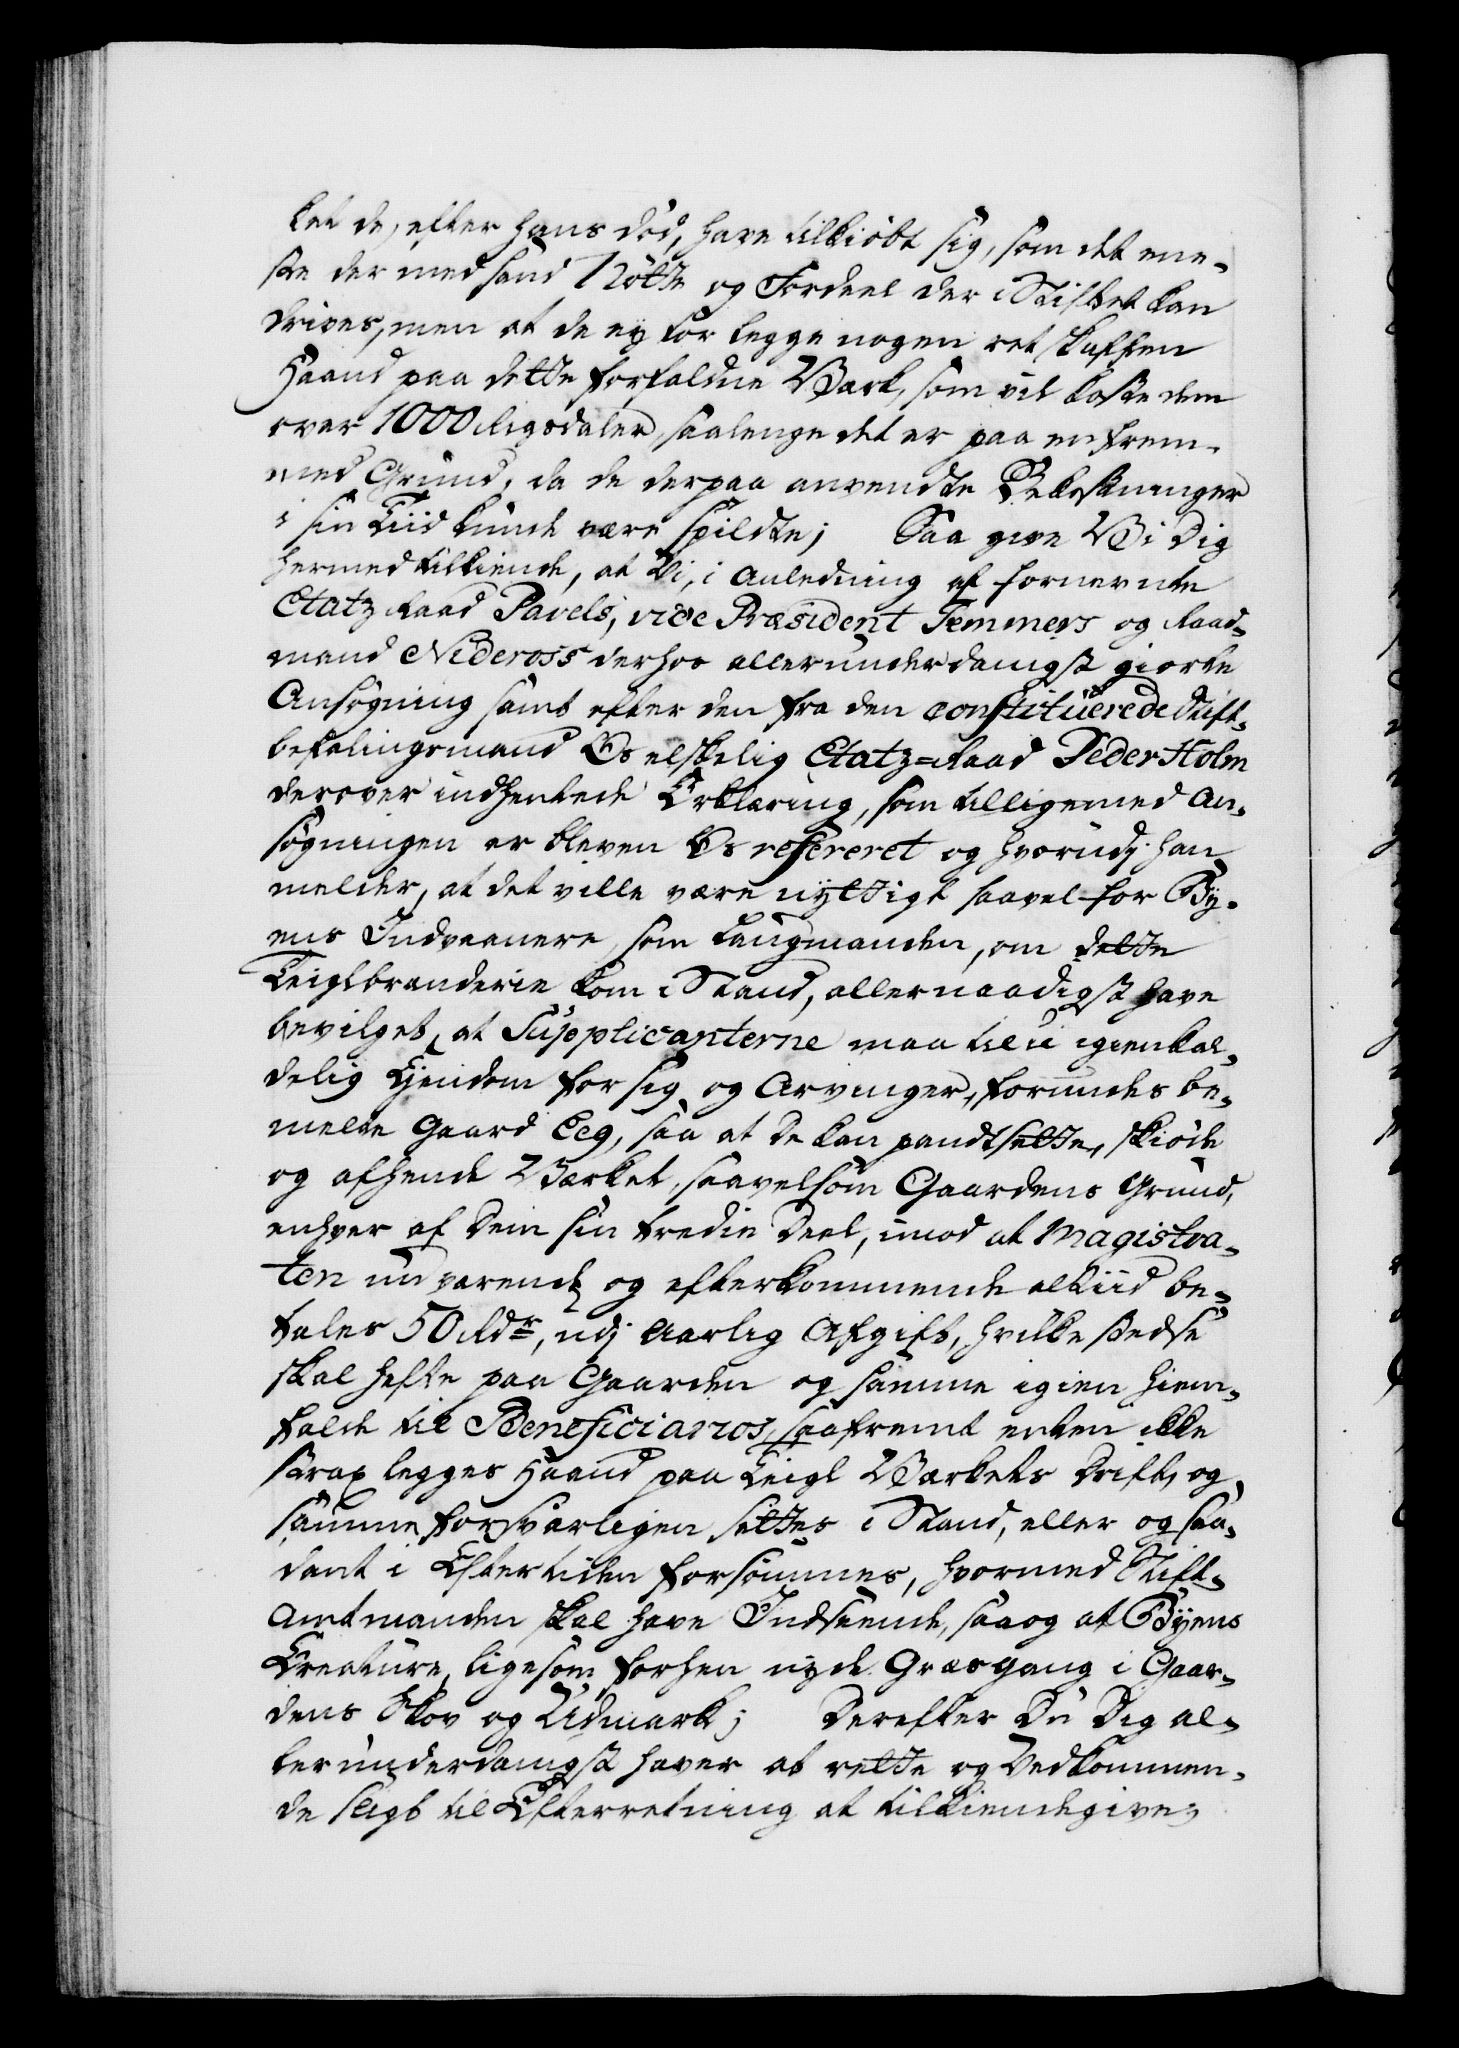 ket de, efter hans død, have tilkiøbt sig, som det ene-
ste der med sand Nøtte og Fordeel der i Stiftet kan
drives, men at de ey tør legge nogen ret skaffen
Haand paa dette forfaldne Værk, som vil koste dem
over 1000 Rigsdaler, saalenge det er paa en frem-
med Grund, da de derpaa anvendte Bekostninger
i sin Tiid kunde være spildte; Saa give Vi Dig
hermed tilkiende, at Vi, i Anledning af fornevnte
Etatz Raad Pavels, vice Præsident Temmers og Raad-
mand Nideross derhos allerunderdanigst giorte
Ansøgning samt efter den fra den constituerede Stift-
befalingsmand Os elskelig Etatz=Raad Peder Holm
derover indhentede Erklæring, som tilligemed An-
søgningen er bleven Os refereret og hvorudj han
melder, at det ville være nyttigt saavel for By-
ens Indvaanere, som Laugmanden, om dette
Teiglbrænderie kom i Stand, allernaadigst have
bevilget, at Supplicanterne maa til u igienkal-
delig Ejendom for sig og Arvinger, forundes be-
melte Gaard Eeg, saa at De kan pandtsette, skiøde
og afhende Værket, saavelsom Gaardens Grund,
enhver af Dem sin tredie Deel, imod at Magistra-
ten nu værende og efterkommende altiid be-
tales 50 Rdr, udj Aarlig Afgift, hvilke stedse
skal hefte paa Gaarden og samme igien hiem-
falde til Beneficiarios, saafremt enten ikke
strax legges Haand paa Teigl Værkets Drift, og
samme forsvarligen settes i Stand, eller og saa-
dant i Eftertiden forsømmes, hvormed Stift-
Amtmanden skal have Indseende, saa og at Byens
Creature, ligesom forhen nyde Græsgang i Gaar-
dens Skov og Udmark; Derefter Du Dig al-
lerunderdanigst haver at rette og Vedkommen-
de sligt til Efterretning at tilkiendegive;